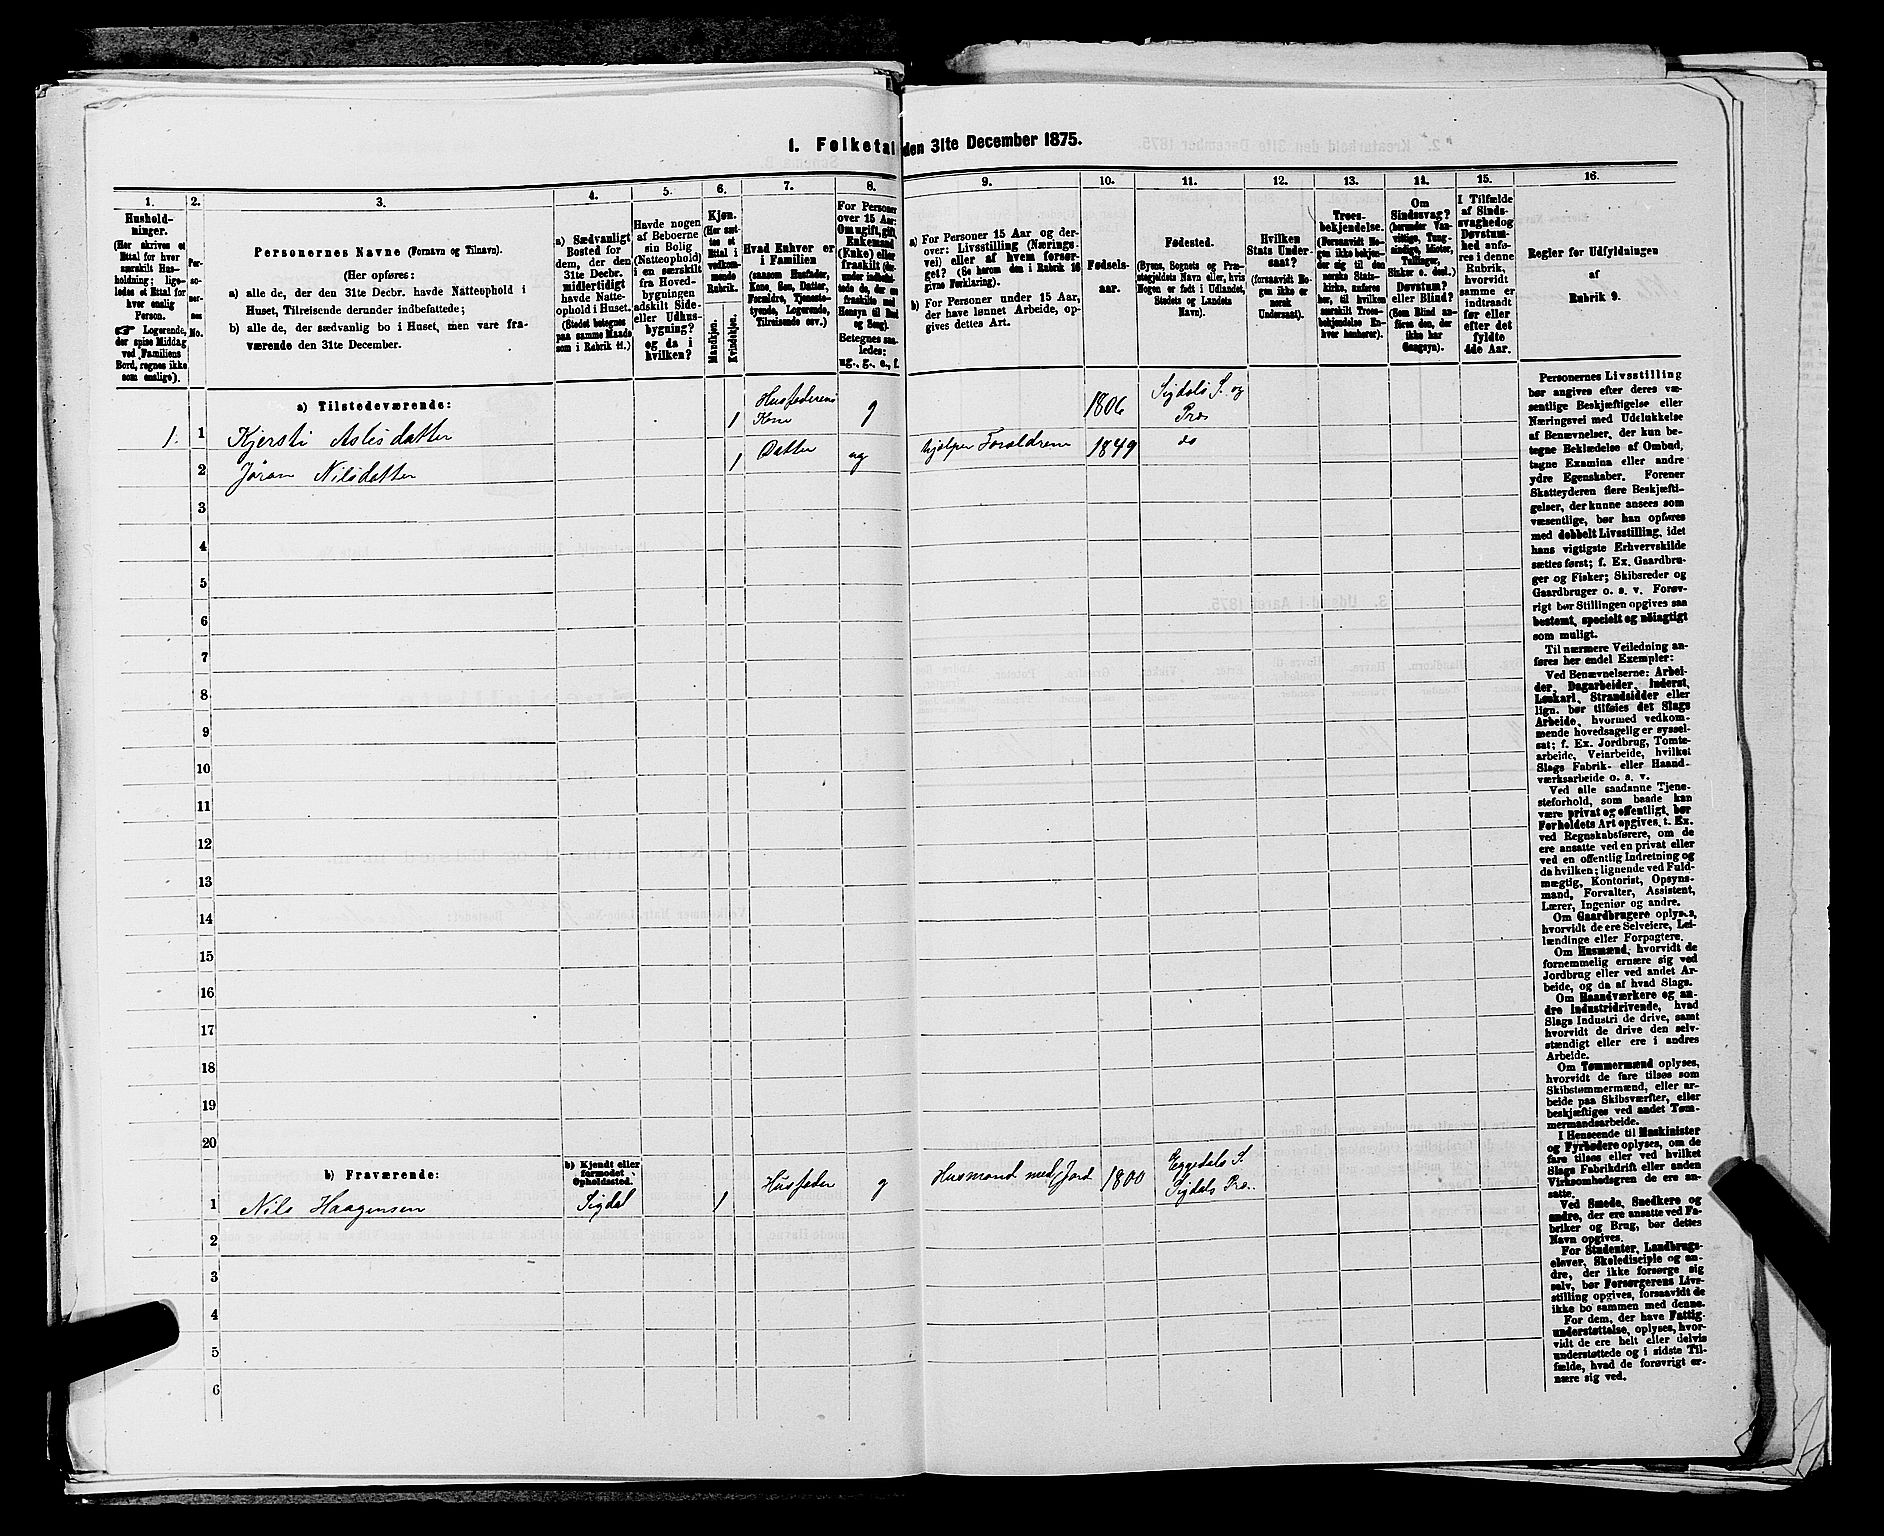 1. Folketal den 31te December 1875.
1.
2.
3.
4.
5.
6.
7.
8.
9.
10.
11.
12.
13.
14.
15.
16.
Hushold-
ninger.
(Her skrives et
Ettal for hver
særskilt Hus-
holdning; lige-
ledes et Ettal for
hver enslig
Person.
☞ Logerende,
der spise Middag
ved Familiens
Bord, regnes ikke
som enslige).
Per-
so-
ner-
nes
No.
Personernes Navne (Fornavn og Tilnavn).
(Her opføres:
a) alle de, der den 31te Decbr. havde Natteophold i
Huset, Tilreisende derunder indbefattede;
b) alle de, der sædvanlig bo i Huset, men vare fra-
værende den 31te December.
a) Sædvanligt
Bosted for
dem, der den
31te Decbr.
midlertidigt
havde Natte-
ophold i Huset.
(Stedet betegnes
paa samme Maade
som i Rubrik 11.)
Havde nogen
af Beboerne
sin Bolig
(Natteophold)
i en særskilt
fra Hoved-
bygningen
adskilt Side-
eller Udhus-
bygning?
og da i
hvilken?
Kjøn.
(Her sæt-
tes et
Ettal i
vedkom-
mende
Rubrik.
Mandkjøn.
Kvindekjøn.
Hvad Enhver er
i Familien
(saasom Husfader,
Kone, Søn, Datter,
Forældre, Tjeneste-
tyende, Logerende,
Tilreisende osv.)
For Personer
over 15 Aar:
Om ugift, gift,
Enkemand
(Enke) eller
fraskilt (der-
under indbefat-
tede de, der ere
fraskilte med
Hensyn til Bord
og Seng).
Betegnes saa-
ledes:
ug., g., e., f.
a) For Personer 15 Aar og der-
over: Livsstilling (Nærings-
vei) eller af hvem forsør-
get? (Se herom den i Rubrik 16
givne Forklaring).
b) For Personer under 15 Aar,
der have lønnet Arbeide, op-
gives dettes Art.
Fødsels-
aar.
Fødested.
(Byens, Sognets og Præ-
stegjeldets Navn eller, hvis
Nogen er født i Udlandet,
Stedets og Landets
Navn).
Hvilken
Stats Under-
saat?
(forsaavidt No-
gen ikke er
norsk
Undersaat).
Troes-
bekjendelse.
(Forsaavidt No-
gen ikke bekjen-
der sig til den
norske Stats-
kirke, anføres
her, til hvilken
særskilt Troes-
bekjendelse En-
hver henhører).
Om
Sindssvag?
(herunder Van-
vittige, Tung-
sindige, Idioter,
Tullinger,
Sinker o. desl.)
Døvstum?
eller Blind?
(Som Blind an-
føres den, der
ikke har
Gangsyn).
I Tilfælde
af Sinds-
svaghedog
Døvstum-
hed anfø-
res i denne
Rubrik,
hvorvidt
samme er
indtraadt
før eller
efter det
fyldte
4de Aar.
Regler for Udfyldningen
af
Rubrik 9.
a) Tilstedeværende:
1. 1 Kjersti Aslesdatter 1 Husfaderens Kone g 1806 Sigdals S. og Præs
2 Jøran Nilsdatter 1 Datter ug hjelper Forældrene 1849 do
3
4
5
6
7
8
9
10
11
12
13
14
15
16
17
18
19
20
b) Fraværende:
b) Kjendt eller
formodet
Opholdssted.
1 Nils Haagensen Sigdal 1 Husfader g Husmand med Jord 1800 Eggedals S. Sigdals Præ.
2
3
4
5
6
Personernes Livsstilling
bør angives efter deres væ-
sentlige Beskjæftigelse eller
Næringsvei med Udelukkelse
af Benævnelser, der kun be-
tegne Beklædelse af Ombud,
tagne Examina eller andre
ydre Egenskaber. Forener
Skatteyderen flere Beskjæfti-
gelser, der kunne ansees som
væsentlige, bør han opføres
med dobbelt Livsstilling, idet
hans vigtigste Erhvervskilde
sættes først; f. Ex. Gaardbru-
ger og Fisker; Skibsreder og
Gaardbruger o. s. v. Forøv-
rigt bør Stillingen opgives saa
bestemt, specielt og nøiagtigt
som muligt.
Til nærmere Veiledning an-
føres her endel Exempler:
Ved Benævnelserne: Arbei-
der, Dagarbeider, Inderst,
Løskarl, Strandsidder eller
lign. bør tilføies det Slags
Arbeide, hvormed vedkom-
mende hovedsagelig er syssel-
sat; f. Ex. Jordbrug, Tomte-
arbeide, Veiarbeide, hvilket
Slags Fabrik- eller Haand-
værksarbeide o. s. v.
Ved alle saadanne Tjene-
steforhold, som baade kan
være privat og offentligt, bør
Forholdets Art opgives, t. Ex.
ved Regnskabsførere, om de
ere ansatte ved en privat eller
ved en offentlig Indretning og
da hvilken; lignende ved Fuld-
mægtig, Kontorist, Opsyns-
mand, Forvalter, Assistent,
Lærer, Ingeniør og andre.
Om Gaardbrugere oplyses,
hvorvidt de ere Selveiere, Lei-
lændinge eller Forpagtere.
Om Husmænd, hvorvidt de
fornemmelig ernære sig ved
Jordbrug eller ved andet Ar-
beide, og da af hvad Slags.
Om Haandværkere og an-
dre Industridrivende, hvad
Slags Industri de drive, samt
hvorvidt de drive den selv-
stændigt eller ere i andres
Arbeide.
Om Tømmermænd oplyses,
hvorvidt de fare tilsøs som
Skibstømmermænd, eller ar-
beide paa Skibsværfter, eller
beskjæftiges ved andet Tøm-
mermandsarbeide.
I Henseende til Maskinister
og Fyrbødere oplyses, om de
fare tilsøs eller ved hvilket
Slags Fabrikdrift eller anden
Virksomhedsgren de ere an-
satte.
Ved Smede, Snedkere og
andre, der ere ansatte ved Fa-
briker og Brug, bør dettes
Navn opgives.
For Studenter, Landbrugs-
elever, Skoledisciple og an-
dre, der ikke forsørge sig
selv, bør Forsørgerens Livs-
stilling opgives, forsaavidt de
ikke bo sammen med denne.
For dem, der have Fattig-
understøttelse, oplyses, hvor-
vidt de ere helt eller delvis
understøttede og i sidste Til-
fælde, hvad de forøvrigt er-
nære sig ved.